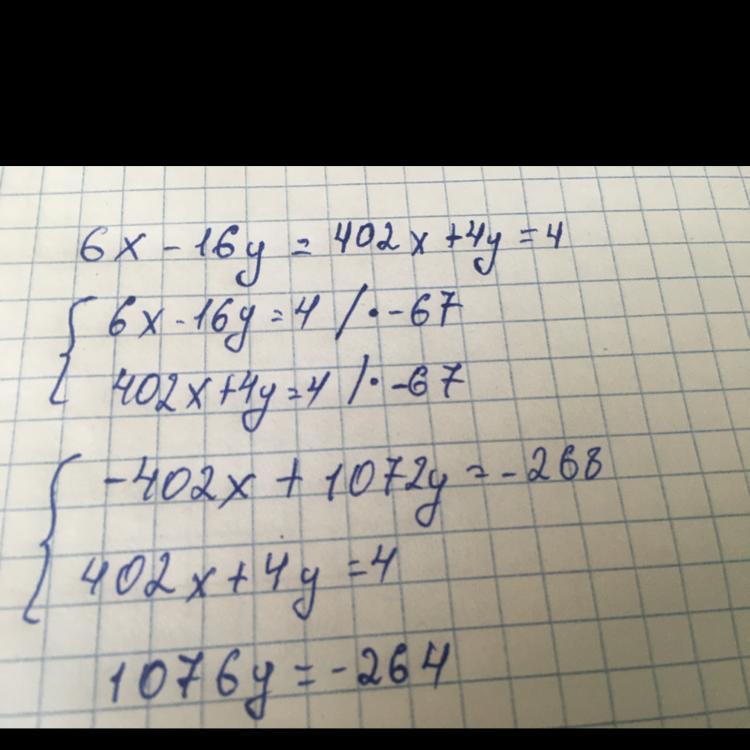 6x - 16y = 402x + 4y = 4
6x - 16y = 4 / · -67
402x + 4y = 4 / · -67
-402x + 1072y = -268
402x + 4y = 4
1076y = -264